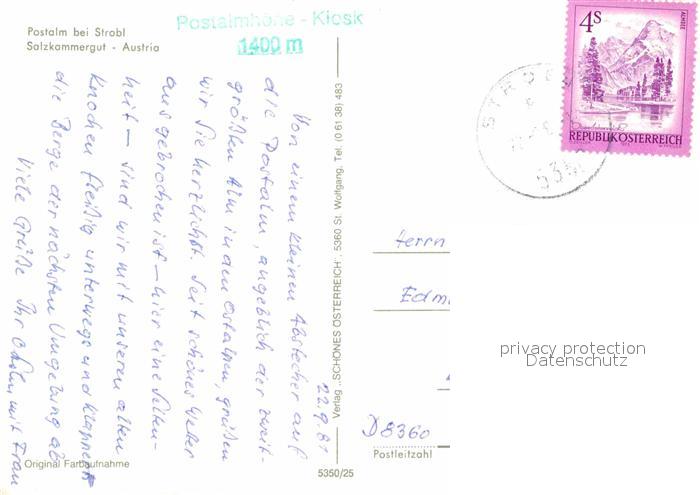 Postalm bei Strobl
Salzkammergut - Austria
Postalmhöhe - Kiosk
1400 m
22.9.81
Von einem kleinen Abstecher auf
die Postalm, angeblich der zweit-
größten Alm in den Ostalpen, grüßen
wir Sie herzlichst. Seit schönes Wetter
ausgebrochen ist – hier eine Selten-
heit – sind wir mit unseren alten
Knochen fleißig unterwegs und klappern
die Berge der nächsten Umgebung ab
Viele Grüße Ihr mit Frau
Original Farbaufnahme
Verlag „SCHÖNES ÖSTERREICH", 5360 St. Wolfgang, Tel. (0 61 38) 483
5350/25
4S
ALMSEE
REPUBLIK ÖSTERREICH
STROBL
534
Herrn
Edm
privacy protection
Datenschutz
D 8360
Postleitzahl